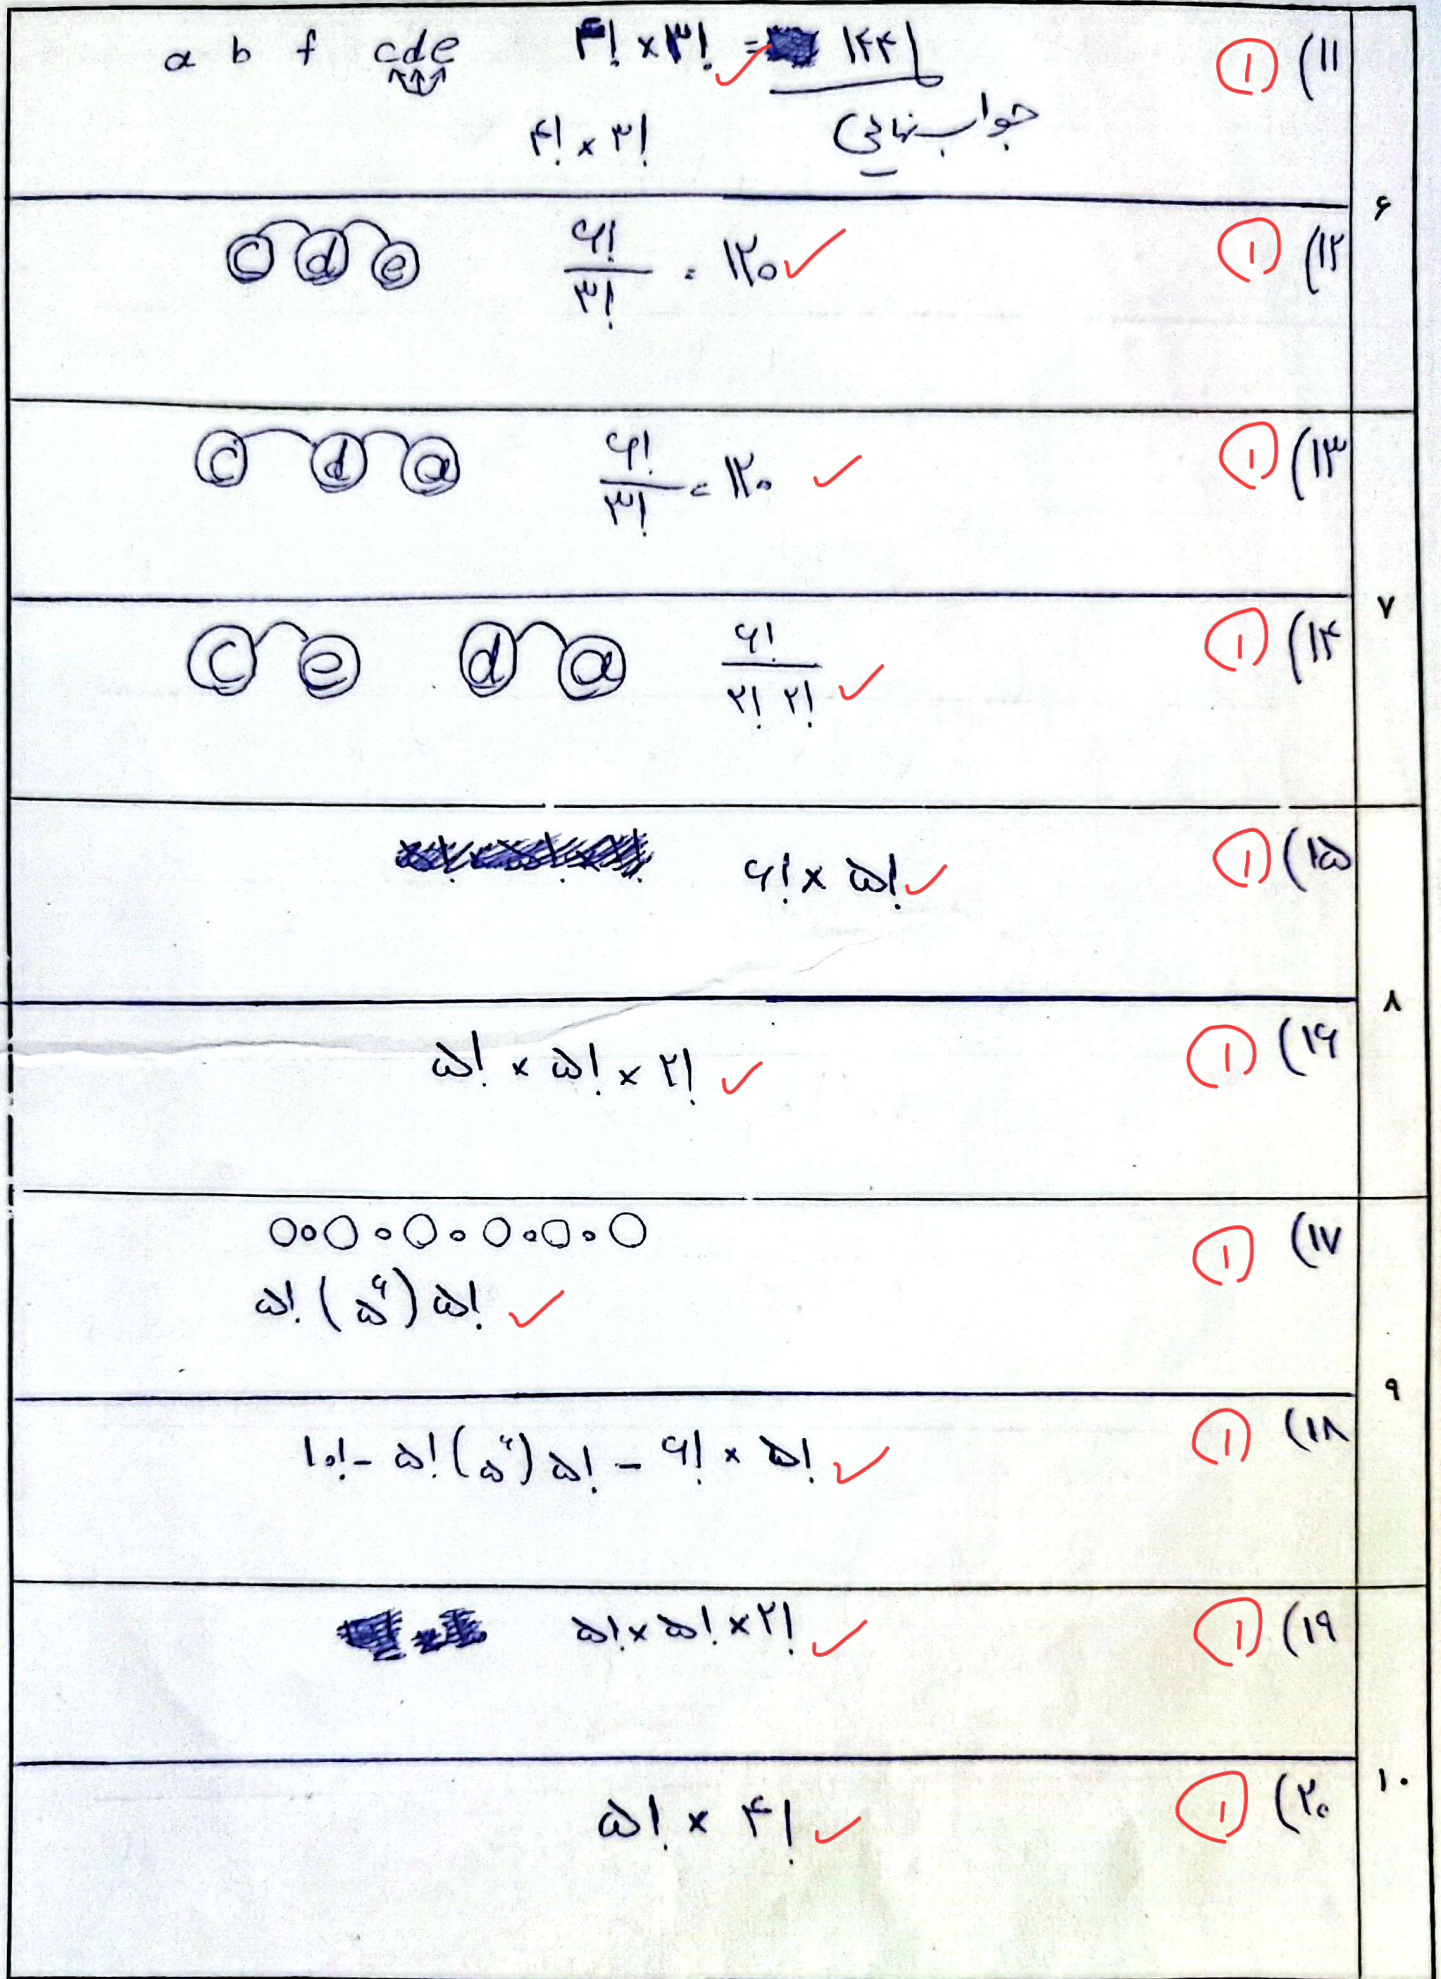 ۱۱) ① a b f cde ۴! × ۳! = ۱۴۴
۴! × ۳! جواب نهایی
۶
۱۲) ① c d e ۶!/۳! = ۱۲۰
۱۳) ① c d a ۶!/۳! = ۱۲۰
۷
۱۴) ① c e d a ۶!/۲! ۲!
۱۵) ① ۶! × ۵!
۸
۱۶) ① ۵! × ۵! × ۲!
۱۷) ①
۵! (۶ ۵) ۵!
۹
۱۸) ① ۱۰! - ۵! (۶ ۵) ۵! - ۶! × ۵!
۱۹) ① ۵! × ۵! × ۲!
۱۰
۲۰) ① ۵! × ۴!